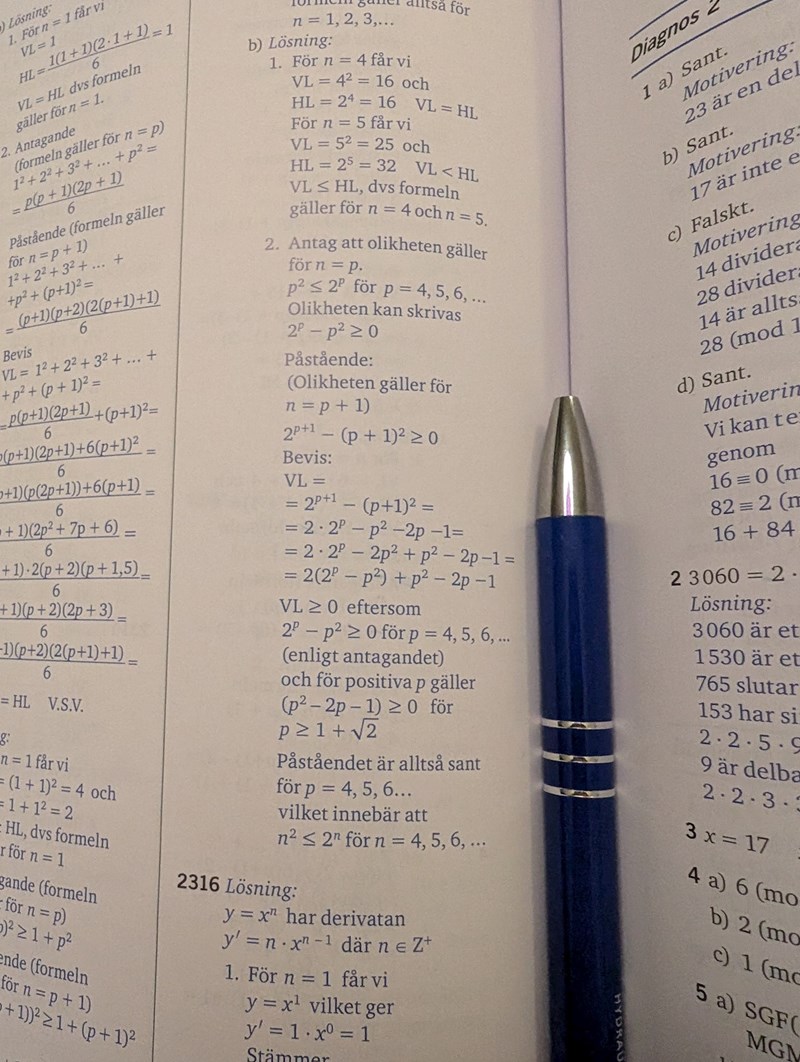 ) Lösning:
1. För n = 1 får vi
VL = 1
HL = 1(1 + 1)(2 · 1 + 1)/6 = 1
VL = HL dvs formeln
gäller för n = 1.
2. Antagande
(formeln gäller för n = p)
1² + 2² + 3² + … + p² =
= p(p + 1)(2p + 1)/6
Påstående (formeln gäller
för n = p + 1)
1² + 2² + 3² + … +
+p² + (p+1)² =
= (p+1)(p+2)(2(p+1)+1)/6
Bevis
VL = 1² + 2² + 3² + … +
+ p² + (p + 1)² =
= p(p+1)(2p+1)/6 +(p+1)²=
(p+1)(2p+1)+6(p+1)²/6 =
+1)(p(2p+1))+6(p+1)/6 =
+ 1)(2p² + 7p + 6)/6 =
+ 1)·2(p + 2)(p + 1,5)/6 =
+1)(p + 2)(2p + 3)/6 =
1)(p+2)(2(p+1)+1)/6 =
= HL V.S.V.
g:
n = 1 får vi
= (1 + 1)² = 4 och
= 1 + 1² = 2
HL, dvs formeln
r för n = 1
gande (formeln
för n = p)
)² ≥ 1 + p²
ende (formeln
för n = p + 1)
+ 1))² ≥ 1 + (p + 1)²
formeln gäller alltså för
n = 1, 2, 3,…
b) Lösning:
1. För n = 4 får vi
VL = 4² = 16 och
HL = 2⁴ = 16 VL = HL
För n = 5 får vi
VL = 5² = 25 och
HL = 2⁵ = 32 VL < HL
VL ≤ HL, dvs formeln
gäller för n = 4 och n = 5.
2. Antag att olikheten gäller
för n = p.
p² ≤ 2ᵖ för p = 4, 5, 6, …
Olikheten kan skrivas
2ᵖ − p² ≥ 0
Påstående:
(Olikheten gäller för
n = p + 1)
2ᵖ⁺¹ − (p + 1)² ≥ 0
Bevis:
VL =
= 2ᵖ⁺¹ − (p+1)² =
= 2 · 2ᵖ − p² −2p −1=
= 2 · 2ᵖ − 2p² + p² − 2p −1 =
= 2(2ᵖ − p²) + p² − 2p −1
VL ≥ 0 eftersom
2ᵖ − p² ≥ 0 för p = 4, 5, 6, …
(enligt antagandet)
och för positiva p gäller
(p² − 2p − 1) ≥ 0 för
p ≥ 1 + √2
Påståendet är alltså sant
för p = 4, 5, 6…
vilket innebär att
n² ≤ 2ⁿ för n = 4, 5, 6, …
2316 Lösning:
y = xⁿ har derivatan
y′ = n · xⁿ ⁻ ¹ där n ∈ Z⁺
1. För n = 1 får vi
y = x¹ vilket ger
y′ = 1 · x⁰ = 1
Stämmer
Diagnos 2
1 a) Sant.
Motivering:
23 är en del
b) Sant.
Motivering:
17 är inte e
c) Falskt.
Motivering
14 divider
28 divider
14 är allts
28 (mod 1
d) Sant.
Motiverin
Vi kan te
genom
16 ≡ 0 (m
82 ≡ 2 (m
16 + 84
2 3 060 = 2 ·
Lösning:
3 060 är et
1 530 är et
765 slutar
153 har si
2 · 2 · 5 · 9
9 är delba
2 · 2 · 3 ·
3 x = 17
4 a) 6 (mo
b) 2 (mo
c) 1 (mo
5 a) SGF(
MGN